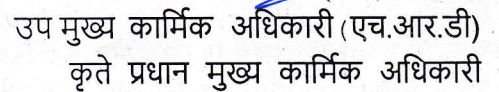 उप मुख्य कार्मिक अधिकारी (एच.आर.डी)
कृते प्रधान मुख्य कार्मिक अधिकारी